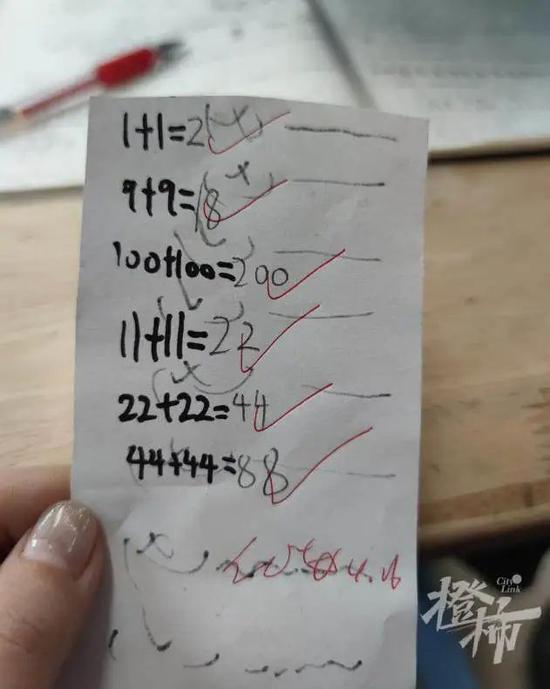 1+1=2(×)
9+9=18
100+100=200
11+11=22
22+22=44
44+44=88
City Link
橙柿